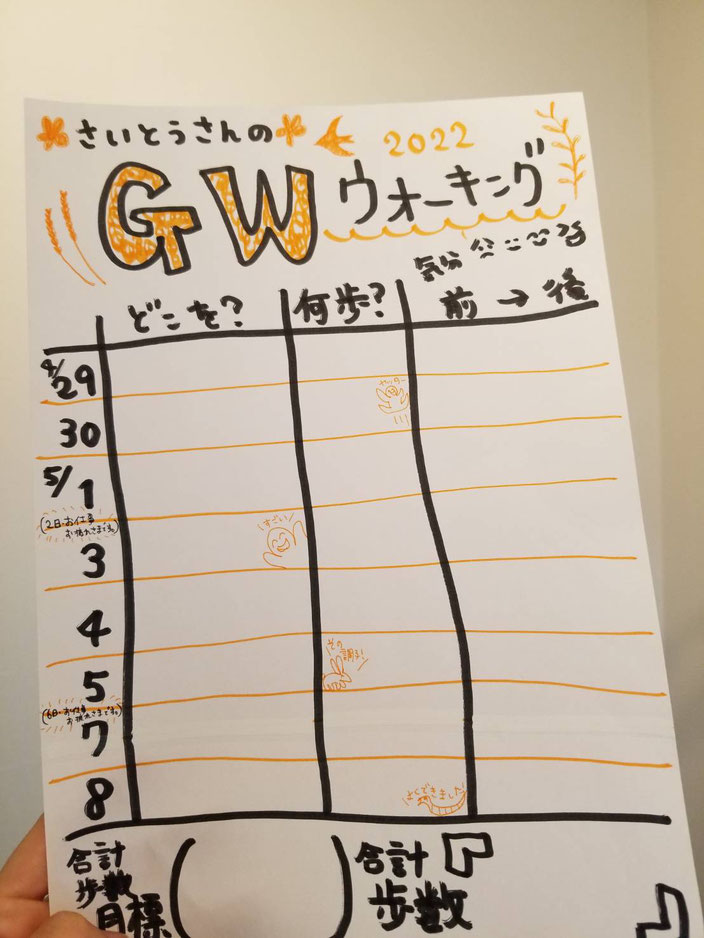 さいとうさんの
2022
GWウォーキング
気分
どこを？
何歩？
前→後
4/29
ヤッター
30
5/1
(2日・お仕事
お疲れさまです。)
すごい
3
4
その
調子!
5
(6日・お仕事
お疲れさまです。)
7
8
よくできました
合計
歩数
目標
合計
歩数